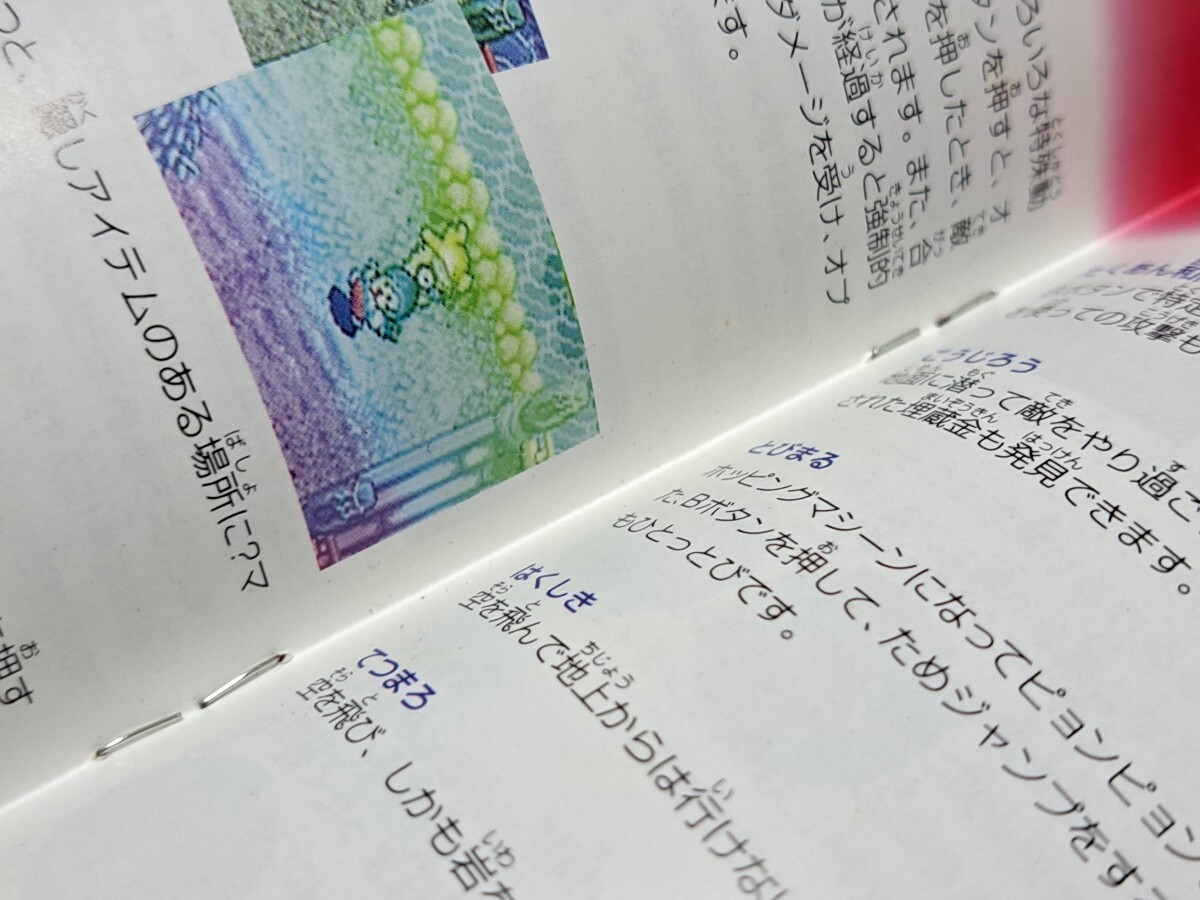 ろいろな特殊動
タンを押すと、オ
を押したとき、敵
されます。また、合
が経過すると強制的
ダメージを受け、オプ
ます。
っと、
隠しアイテムのある場所に?マ
押す
ボタンで特定
っての攻撃も
こうじろう
地面に潜って敵をやり過ご
された埋蔵金も発見できます。
とびまる
ホッピングマシーンになってピョンピョン
た、Bボタンを押して、ためジャンプをす
もひとっとびです。
はくしき
空を飛んで地上からは行けない
てつまろ
空を飛び、しかも岩を